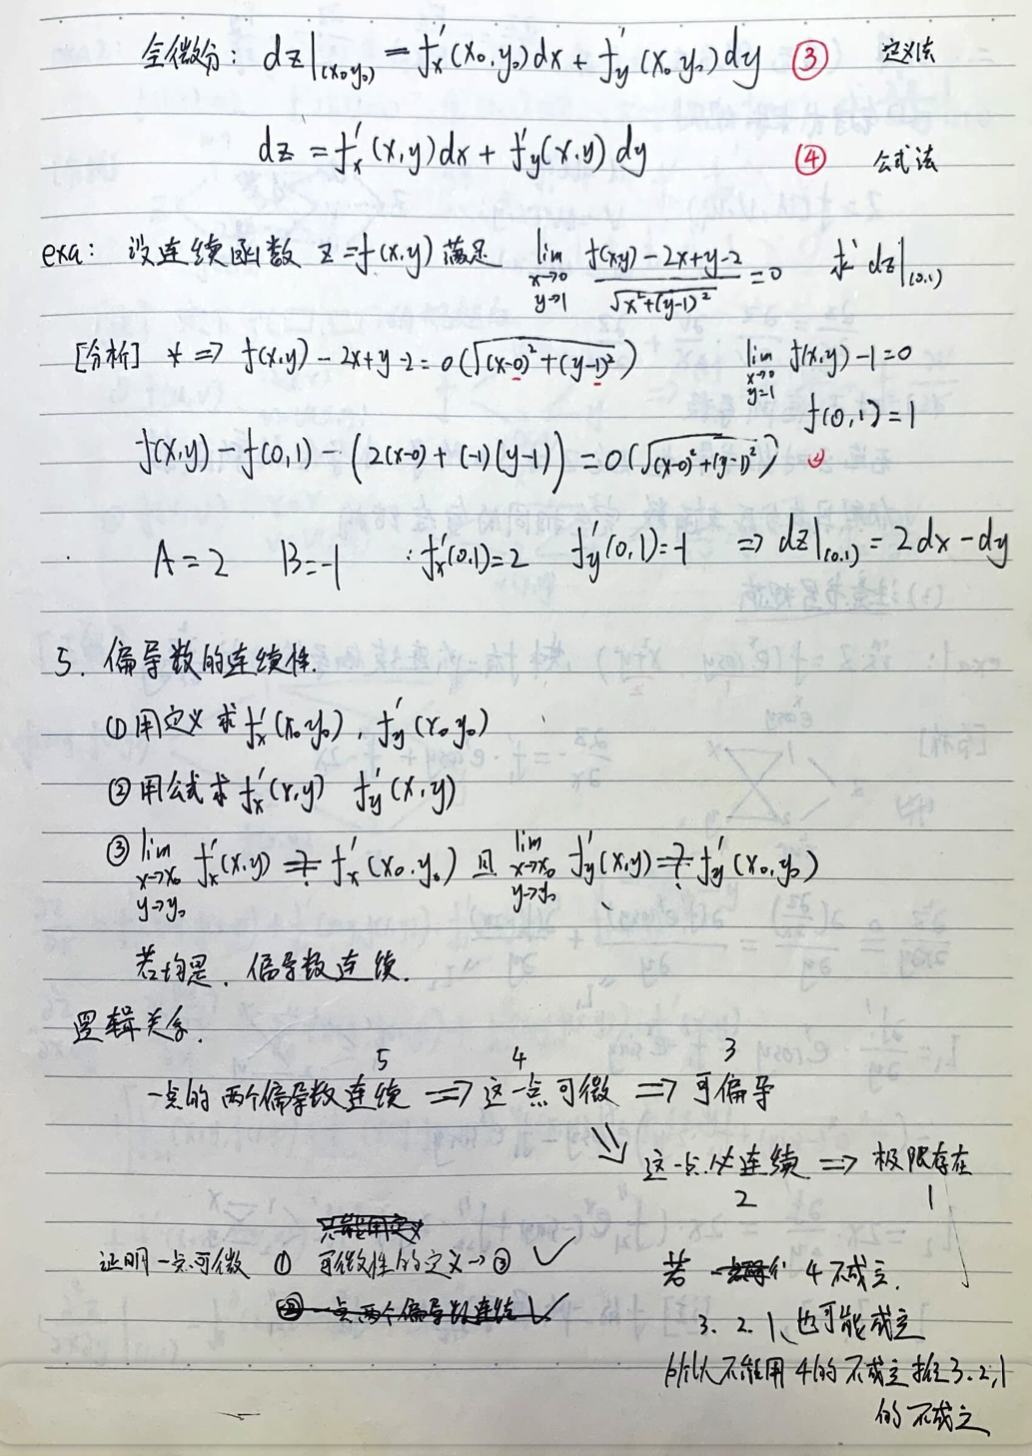 全微分: dz|(x₀,y₀) = f'x(x₀,y₀)dx + f'y(x₀,y₀)dy ③ 定义法
dz = f'x(x,y)dx + f'y(x,y)dy ④ 公式法
exa: 设连续函数 z=f(x,y) 满足 lim x→0 y→1 (f(x,y)-2x+y-2)/√(x²+(y-1)²) = 0 求 dz|(0,1)
[分析] * ⇒ f(x,y)-2x+y-2 = o(√((x-0)²+(y-1)²)) lim x→0 y→1 f(x,y)-1=0
f(0,1)=1
f(x,y)-f(0,1)-(2(x-0)+(-1)(y-1)) = o(√((x-0)²+(y-1)²))
A=2 B=-1 ∴f'x(0,1)=2 f'y(0,1)=-1 ⇒ dz|(0,1) = 2dx-dy
5. 偏导数的连续性.
①用定义求 f'x(x₀,y₀), f'y(x₀,y₀)
②用公式求 f'x(x,y) f'y(x,y)
③ lim x→x₀ y→y₀ f'x(x,y) =? f'x(x₀,y₀) 且 lim x→x₀ y→y₀ f'y(x,y) =? f'y(x₀,y₀)
若均是, 偏导数连续.
逻辑关系.
5 4 3
一点的两个偏导数连续 ⇒ 这一点可微 ⇒ 可偏导
⇘ 这一点必连续 ⇒ 极限存在
2 1
只能用定义
证明一点可微 ① 可微性的定义→③ ✓
② 一点两个偏导数连续 ✓
若 4不成立.
3. 2. 1、也可能成立
所以不能用4的不成立推3.2,1
的不成立